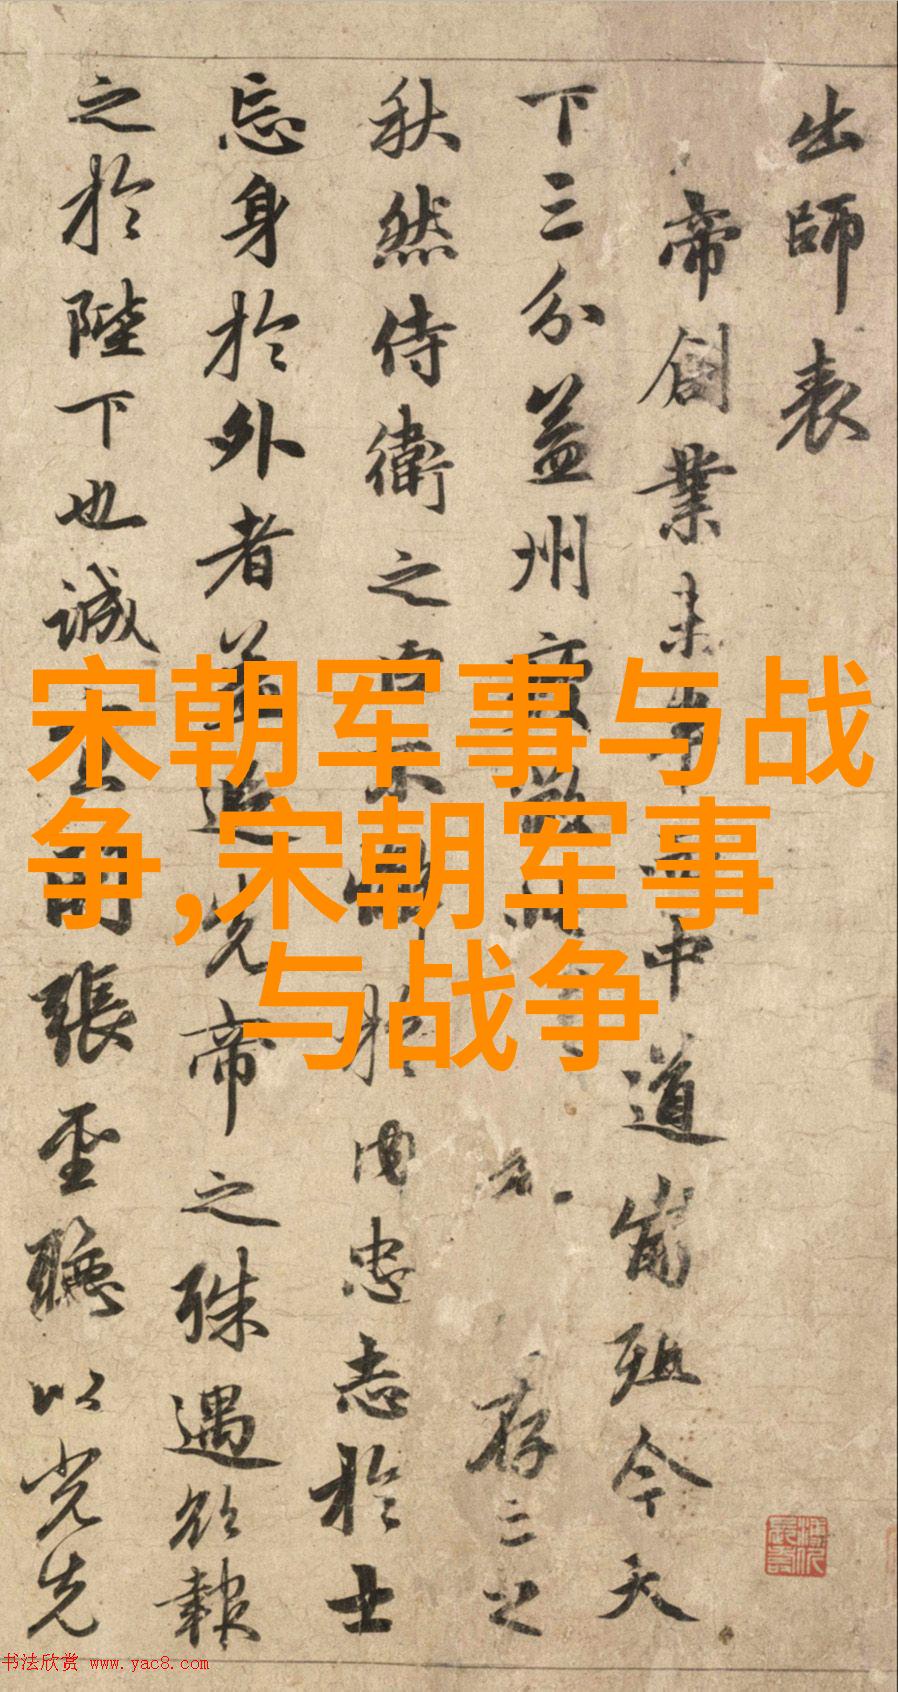 出師表
帝創業未半而中道崩殂今天
下三分益州疲敝存亡之
秋然侍衛之臣不懈於内忠志於士
忘身於外者蓋追先帝之殊遇欲報
之於陛下也誠宜開張聖聽以光先
宋朝军事与战
争,宋朝军事
与战争
书法欣赏 www.yac8.com